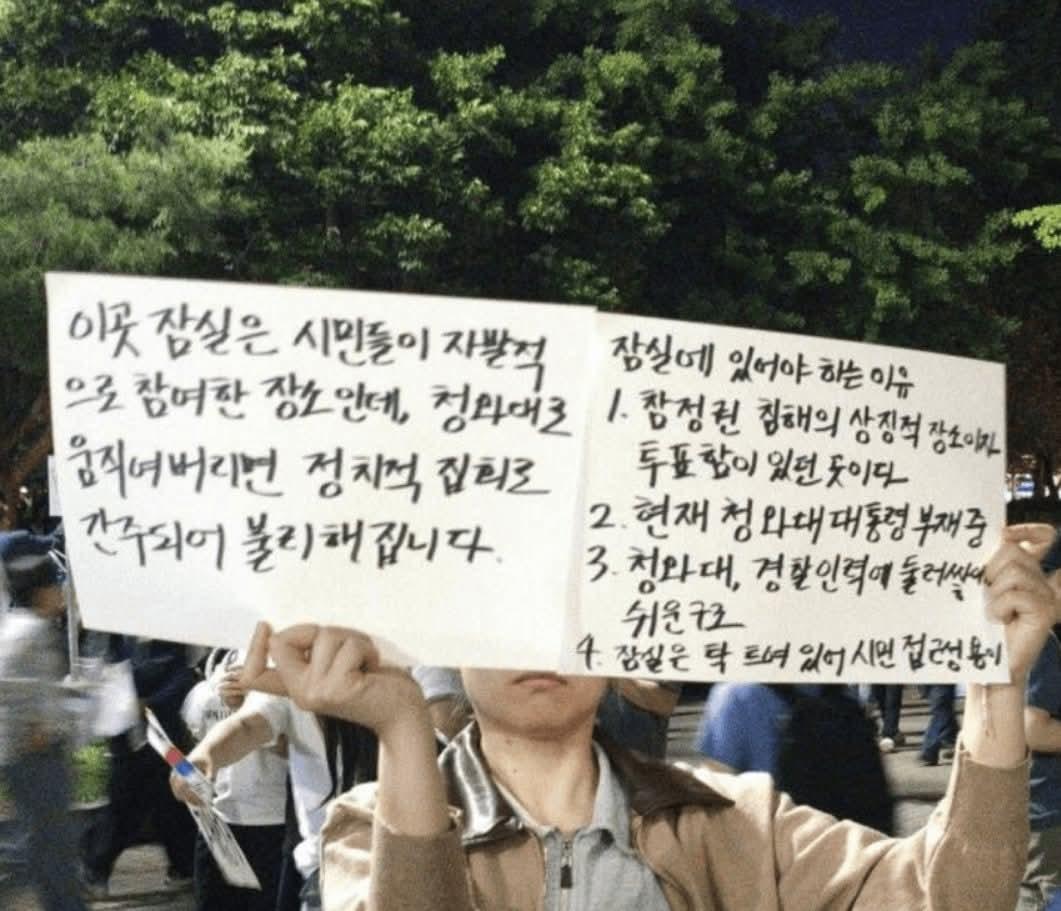 이곳 잠실은 시민들이 자발적
으로 참여한 장소인데, 청와대로
움직여버리면 정치적 집회로
간주되어 불리해집니다.
잠실에 있어야 하는 이유
1. 참정권 침해의 상징적 장소이자
투표함이 있던 곳이다
2. 현재 청와대 대통령 부재 중
3. 청와대, 경찰인력에 둘러싸이
쉬운구조
4. 잠실은 탁 트여 있어 시민 접근성 용이